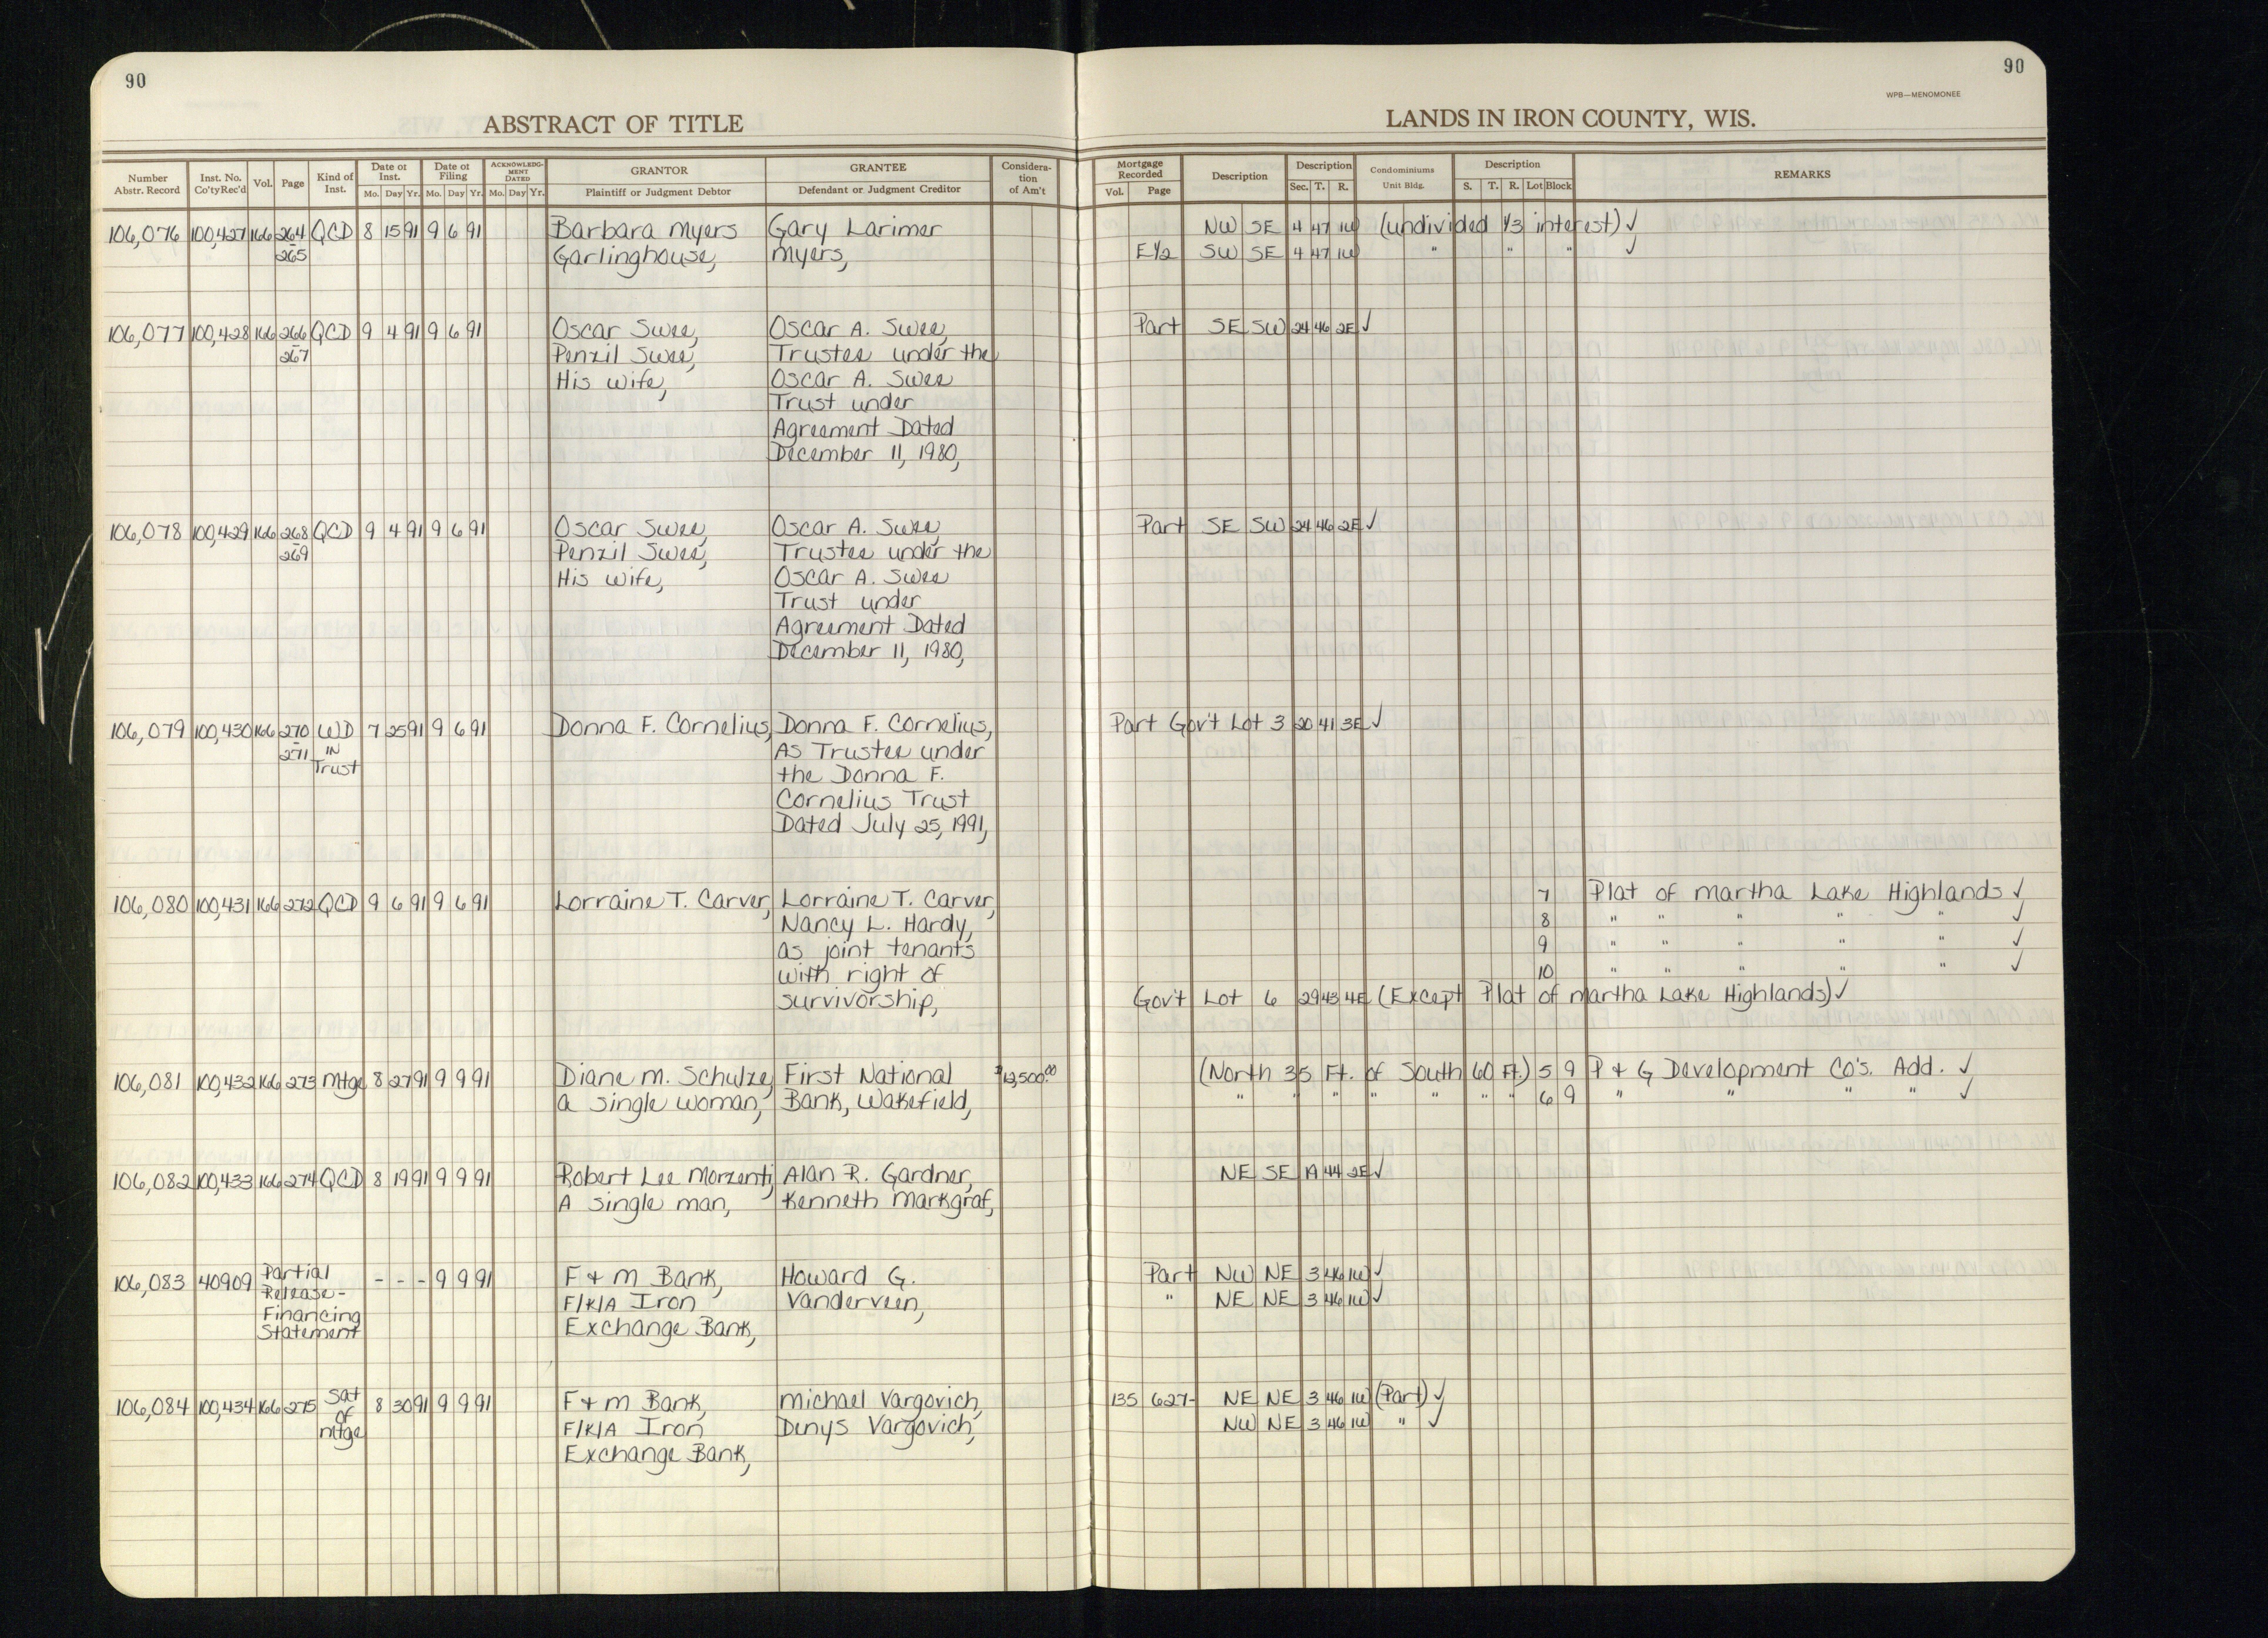 90
90
WPB—MENOMONEE
ABSTRACT OF TITLE
LANDS IN IRON COUNTY, WIS.
Number Abstr. Record
Inst. No. Co'ty Rec'd
Vol.
Page
Kind of Inst.
Date of Inst.
Mo. Day Yr.
Date of Filing
Mo. Day Yr.
ACKNOWLEDGMENT DATED
Mo. Day Yr.
GRANTOR
Plaintiff or Judgment Debtor
GRANTEE
Defendant or Judgment Creditor
Consideration of Am't
Mortgage Recorded
Vol. Page
Description
Description
Sec. T. R.
Condominiums
Unit Bldg.
Description
S. T. R. Lot Block
REMARKS
106,076 100,427 166 264 QCD 8 15 91 9 6 91 Barbara Myers Gary Larimer NW SE 4 47 1W (undivided 1/3 interest) ✓
265 Garlinghouse, Myers, E1/2 SW SE 4 47 1W " " " ✓
106,077 100,428 166 266 QCD 9 4 91 9 6 91 Oscar Swee, Oscar A. Swee, Part SE SW 24 46 2E ✓
267 Penzil Swee, Trustee under the
His wife, Oscar A. Swee
Trust under
Agreement Dated
December 11, 1980,
106,078 100,429 166 268 QCD 9 4 91 9 6 91 Oscar Swee, Oscar A. Swee, Part SE SW 24 46 2E ✓
269 Penzil Swee, Trustee under the
His wife, Oscar A. Swee
Trust under
Agreement Dated
December 11, 1980,
106,079 100,430 166 270 WD 7 25 91 9 6 91 Donna F. Cornelius, Donna F. Cornelius, Part Gov't Lot 3 20 41 3E ✓
271 IN As Trustee under
Trust the Donna F.
Cornelius Trust
Dated July 25, 1991,
106,080 100,431 166 272 QCD 9 6 91 9 6 91 Lorraine T. Carver, Lorraine T. Carver, 7 Plat of Martha Lake Highlands ✓
Nancy L. Hardy, 8 " " " " " ✓
as joint tenants 9 " " " " " ✓
with right of 10 " " " " " ✓
survivorship, Gov't Lot 6 29 43 4E (Except Plat of Martha Lake Highlands) ✓
106,081 100,432 166 273 Mtge 8 27 91 9 9 91 Diane M. Schulze, First National (North 35 Ft. of South 60 Ft.) 5 9 P & G Development Co's. Add. ✓
a single woman, Bank, Wakefield, " " " " " " " 6 9 " " " " ✓
106,082 100,433 166 274 QCD 8 19 91 9 9 91 Robert Lee Morzenti, Alan R. Gardner, NE SE 44 2E ✓
A single man, Kenneth Markgraf,
106,083 40909 Partial - - - 9 9 91 F & M Bank, Howard G. Part NW NE 3 46 1W ✓
Release- F/K/A Iron Vanderveen, " NE NE 3 46 1W ✓
Financing Exchange Bank,
Statement
106,084 100,434 166 275 Sat 8 30 91 9 9 91 F & M Bank, Michael Vargovich, 135 627- NE NE 3 46 1W (Part) ✓
of F/K/A Iron Denys Vargovich, NW NE 3 46 1W " ✓
Mtge Exchange Bank,